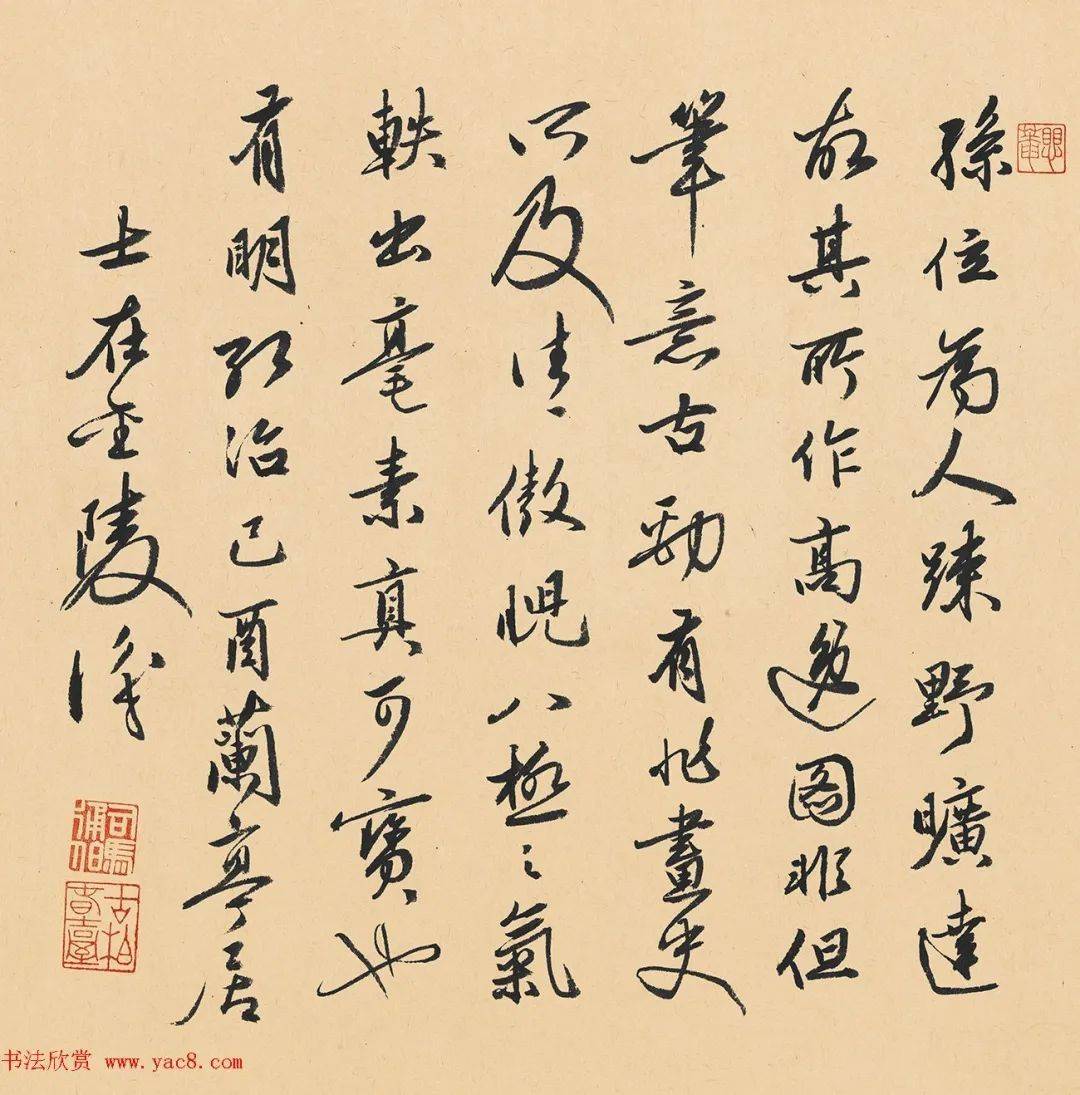 孫位為人踈野曠達
故其所作高逸圖非但
筆意古勁有非畫史
所及往〻傲睨八極之氣
軼出毫素真可寳也
有明弘治己酉蘭亭居
士在金陵識
司馬通伯
书法欣赏 www.yac8.com